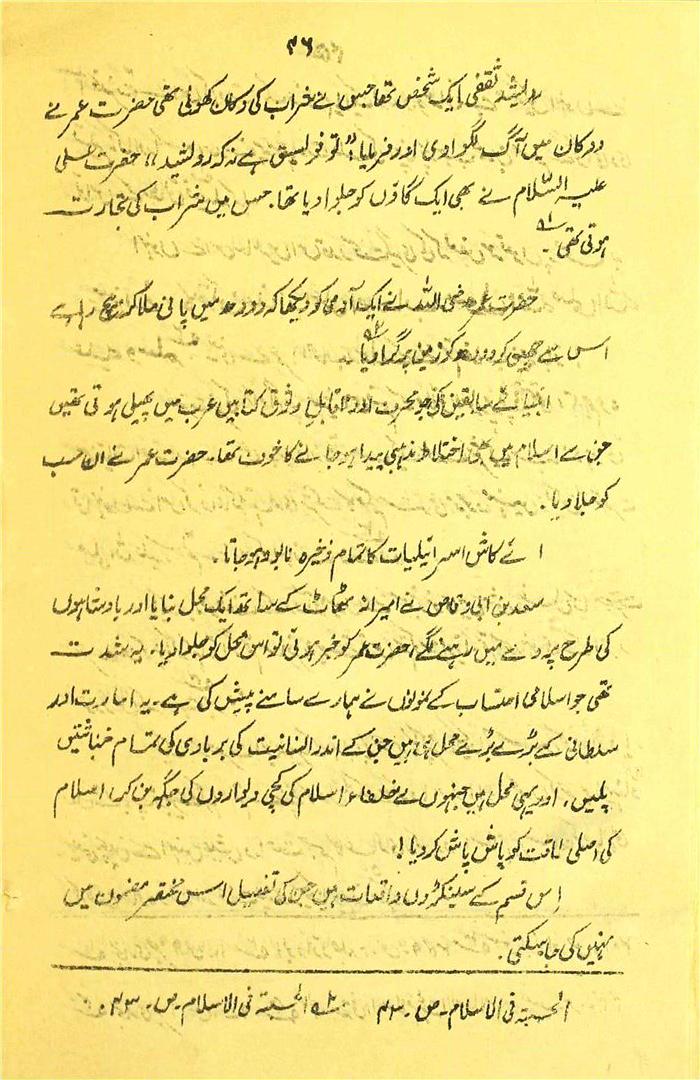 ۳۶
رویشد ثقفی ایک شخص تھا جس نے شراب کی دوکان کھولی تھی حضرت عمر نے
دوکان میں آگ لگوادی اور فرمایا! "تو فویسق ہے نہ کہ رویشد" حضرت علی
علیہ السّلام نے بھی ایک گاؤں کو جلوا دیا تھا۔ جس میں شراب کی تجارت
ہوتی تھی۔
حضرت عمر رضی اللہ نے ایک آدمی کو دیکھا کہ دودھ میں پانی ملا کر بیچ رہا ہے
اس سے چھین کر دودھ کو زمین پر گرا دیا۔
انبیائے سابقین کی جو محرف اور ناقابل وثوق کتابیں عرب میں پھیلی ہوئی تھیں
جن سے اسلام میں بھی اختلاط مذہبی پیدا ہو جانے کا خوف تھا۔ حضرت عمر نے ان سب
کو جلا دیا۔
ائے کاش اسرائیلیات کا تمام ذخیرہ نابود ہو جاتا۔
سعد بن ابی وقاص نے امیرانہ ٹھاٹ کے ساتھ ایک محل بنایا اور بادشاہوں
کی طرح پردے میں رہنے لگے، حضرت عمر کو خبر ہوئی تو اس محل کو جلوا دیا۔ یہ شدت
تھی جو اسلامی احتساب کے نمونوں نے ہمارے سامنے پیش کی ہے۔ یہ امارت اور
سلطانی کے بڑے بڑے محل ہی ہیں جن کے اندر انسانیت کی بربادی کی تمام خباثتیں
پلیں، اور یہی محل ہیں جنہوں نے خلفاء اسلام کی کچی دیواروں کی جگہ بن کر، اسلام
کی اصلی طاقت کو پاش پاش کر دیا!
اس قسم کے سینکڑوں واقعات ہیں جن کی تفصیل اس مختصر مضمون میں
نہیں کی جا سکتی۔
الحسبتہ فی الاسلام۔ ص۔ ۴۳ ۲؎ الحسبتہ فی الاسلام۔ ص۔ ۴۳۔